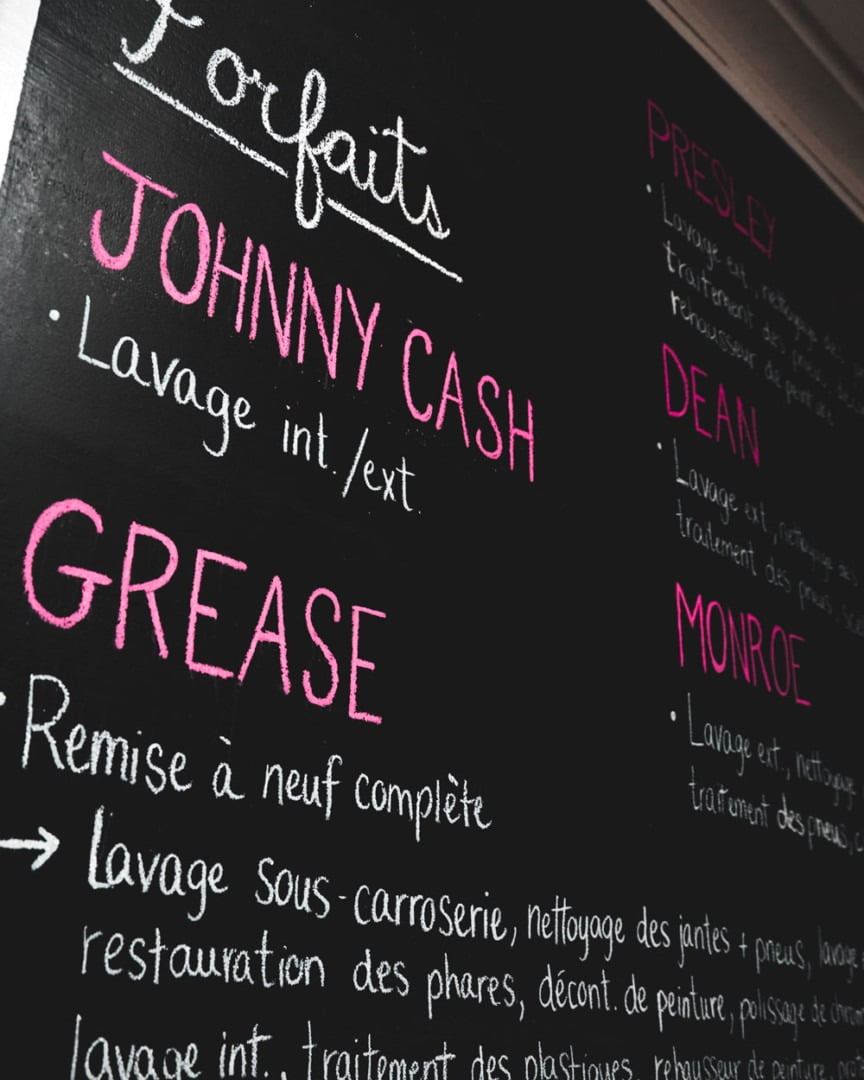 Forfaits
JOHNNY CASH
· Lavage int./ext.
GREASE
· Remise à neuf complète
→ Lavage sous-carroserie, nettoyage des jantes + pneus, lavage
restauration des phares, décont. de peinture, polissage de chrom
lavage int., traitement des plastiques, rehausseur de peinture,
PRESLEY
· Lavage ext., nettoyage des
traitement des pneus,
rehausseur de peinture
DEAN
· Lavage ext., nettoyage des
traitement des pneus,
MONROE
· Lavage ext., nettoyage
traitement des pneus,